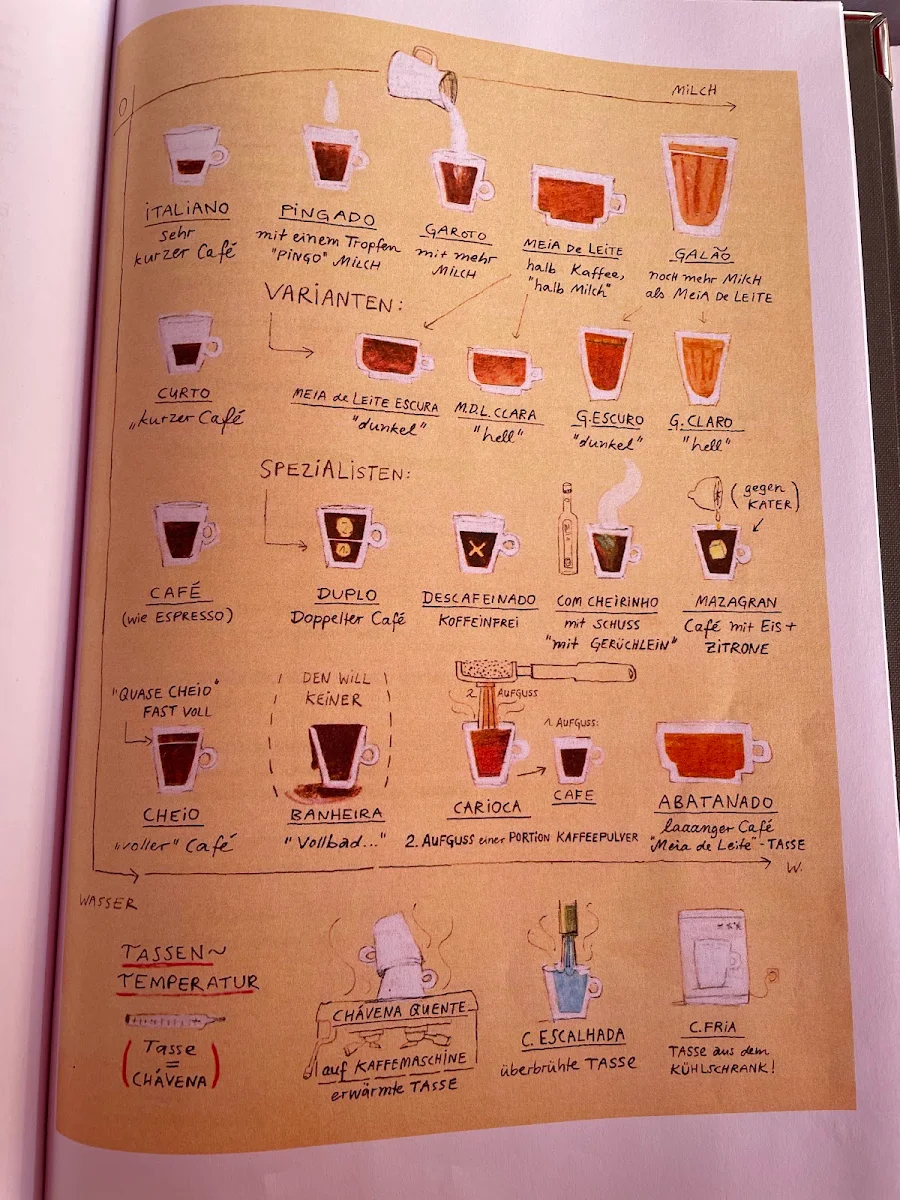 O
MiLCH
iTALiANO
sehr
kurzer Café
PiNGADO
mit einem Tropfen
"PiNGO" MiLCH
GAROTO
mit mehr
MiLCH
MEiA De LEiTE
halb Kaffee,
"halb Milch"
GALÃO
noch mehr Milch
als MEiA De LEITE
VARiANTEN:
CURTO
„kurzer Café"
MEIA de LEiTE ESCURA
"dunkel"
M.D.L. CLARA
"hell"
G.ESCURO
"dunkel"
G. CLARO
"hell"
SPEZiALiSTEN:
(gegen
KATER)
CAFÉ
(wie ESPRESSO)
DUPLO
Doppelter Café
DESCAFEiNADO
KOFFEiNFREi
COM CHEiRiNHO
mit SCHUSS
"mit GERÜCHLEiN"
MAZAGRAN
Café mit Eis +
ZiTRONE
"QUASE CHEiO"
FAST VOLL
CHEiO
„voller" Café
DEN WiLL
KEiNER
BANHEiRA
"Vollbad..."
2. AUFGUSS
1. AUFGUSS:
CARiOCA
CAFE
2. AUFGUSS einer PORTiON KAFFEEPULVER
ABATANADO
laaanger Café
"Meia de Leite"-TASSE
W.
WASSER
TASSEN~
TEMPERATUR
(Tasse
=
CHÁVENA)
CHÁVENA QUENTE
auf KAFFEMASCHiNE
erwärmte TASSE
C. ESCALHADA
überbrühte TASSE
C.FRiA
TASSE aus dem
KÜHLSCHRANK!